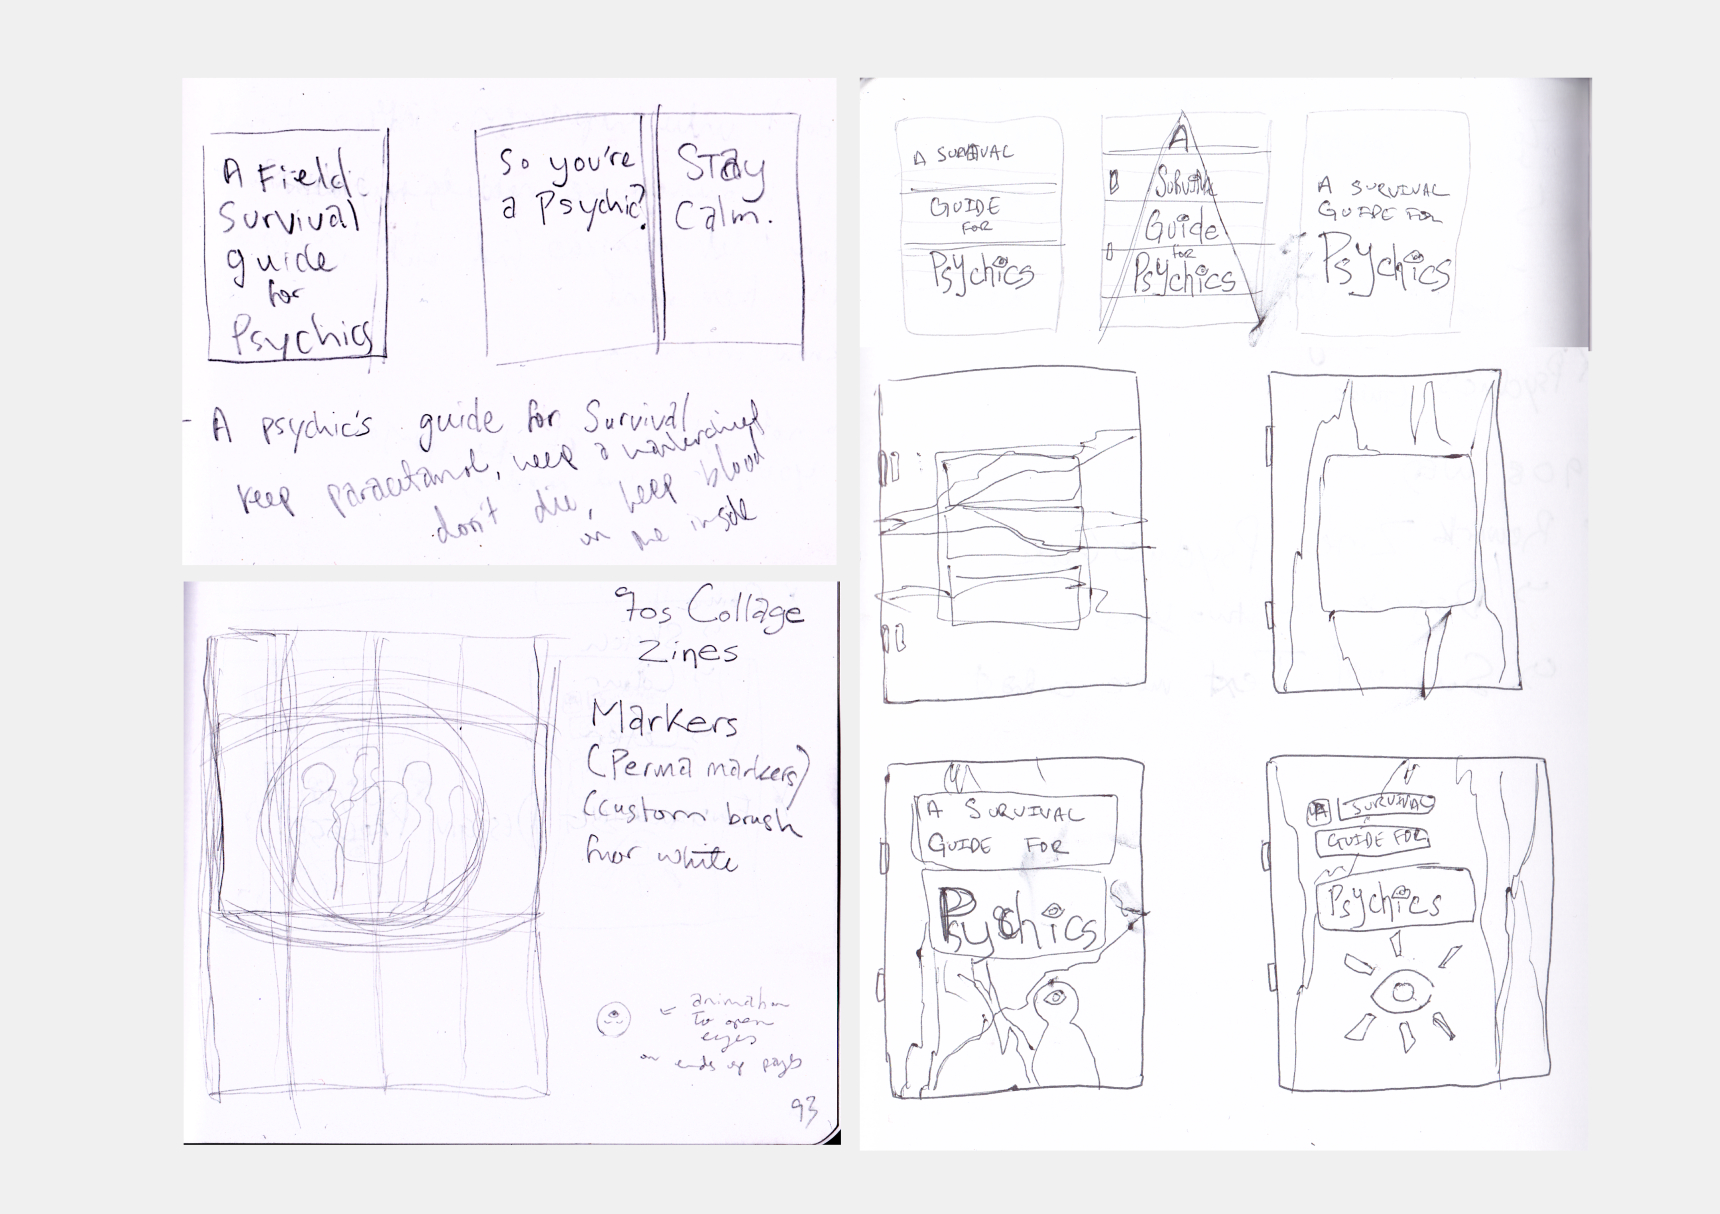 A Field
Survival
guide
for
Psychics
So you're
a Psychic?
Stay
Calm.
- A psychic's guide for Survival
keep paracetamol, keep a
don't die, keep blood
in the inside
90s Collage
Zines
Markers
(Perma markers)
(custom brush
for white
← animation
to open
eyes
on ends of pages
93
A SURVIVAL
GUIDE
FOR
Psychics
A
Survival
Guide
for
Psychics
A SURVIVAL
GUIDE FOR
Psychics
A SURVIVAL
GUIDE FOR
Psychics
A SURVIVAL
GUIDE FOR
Psychics